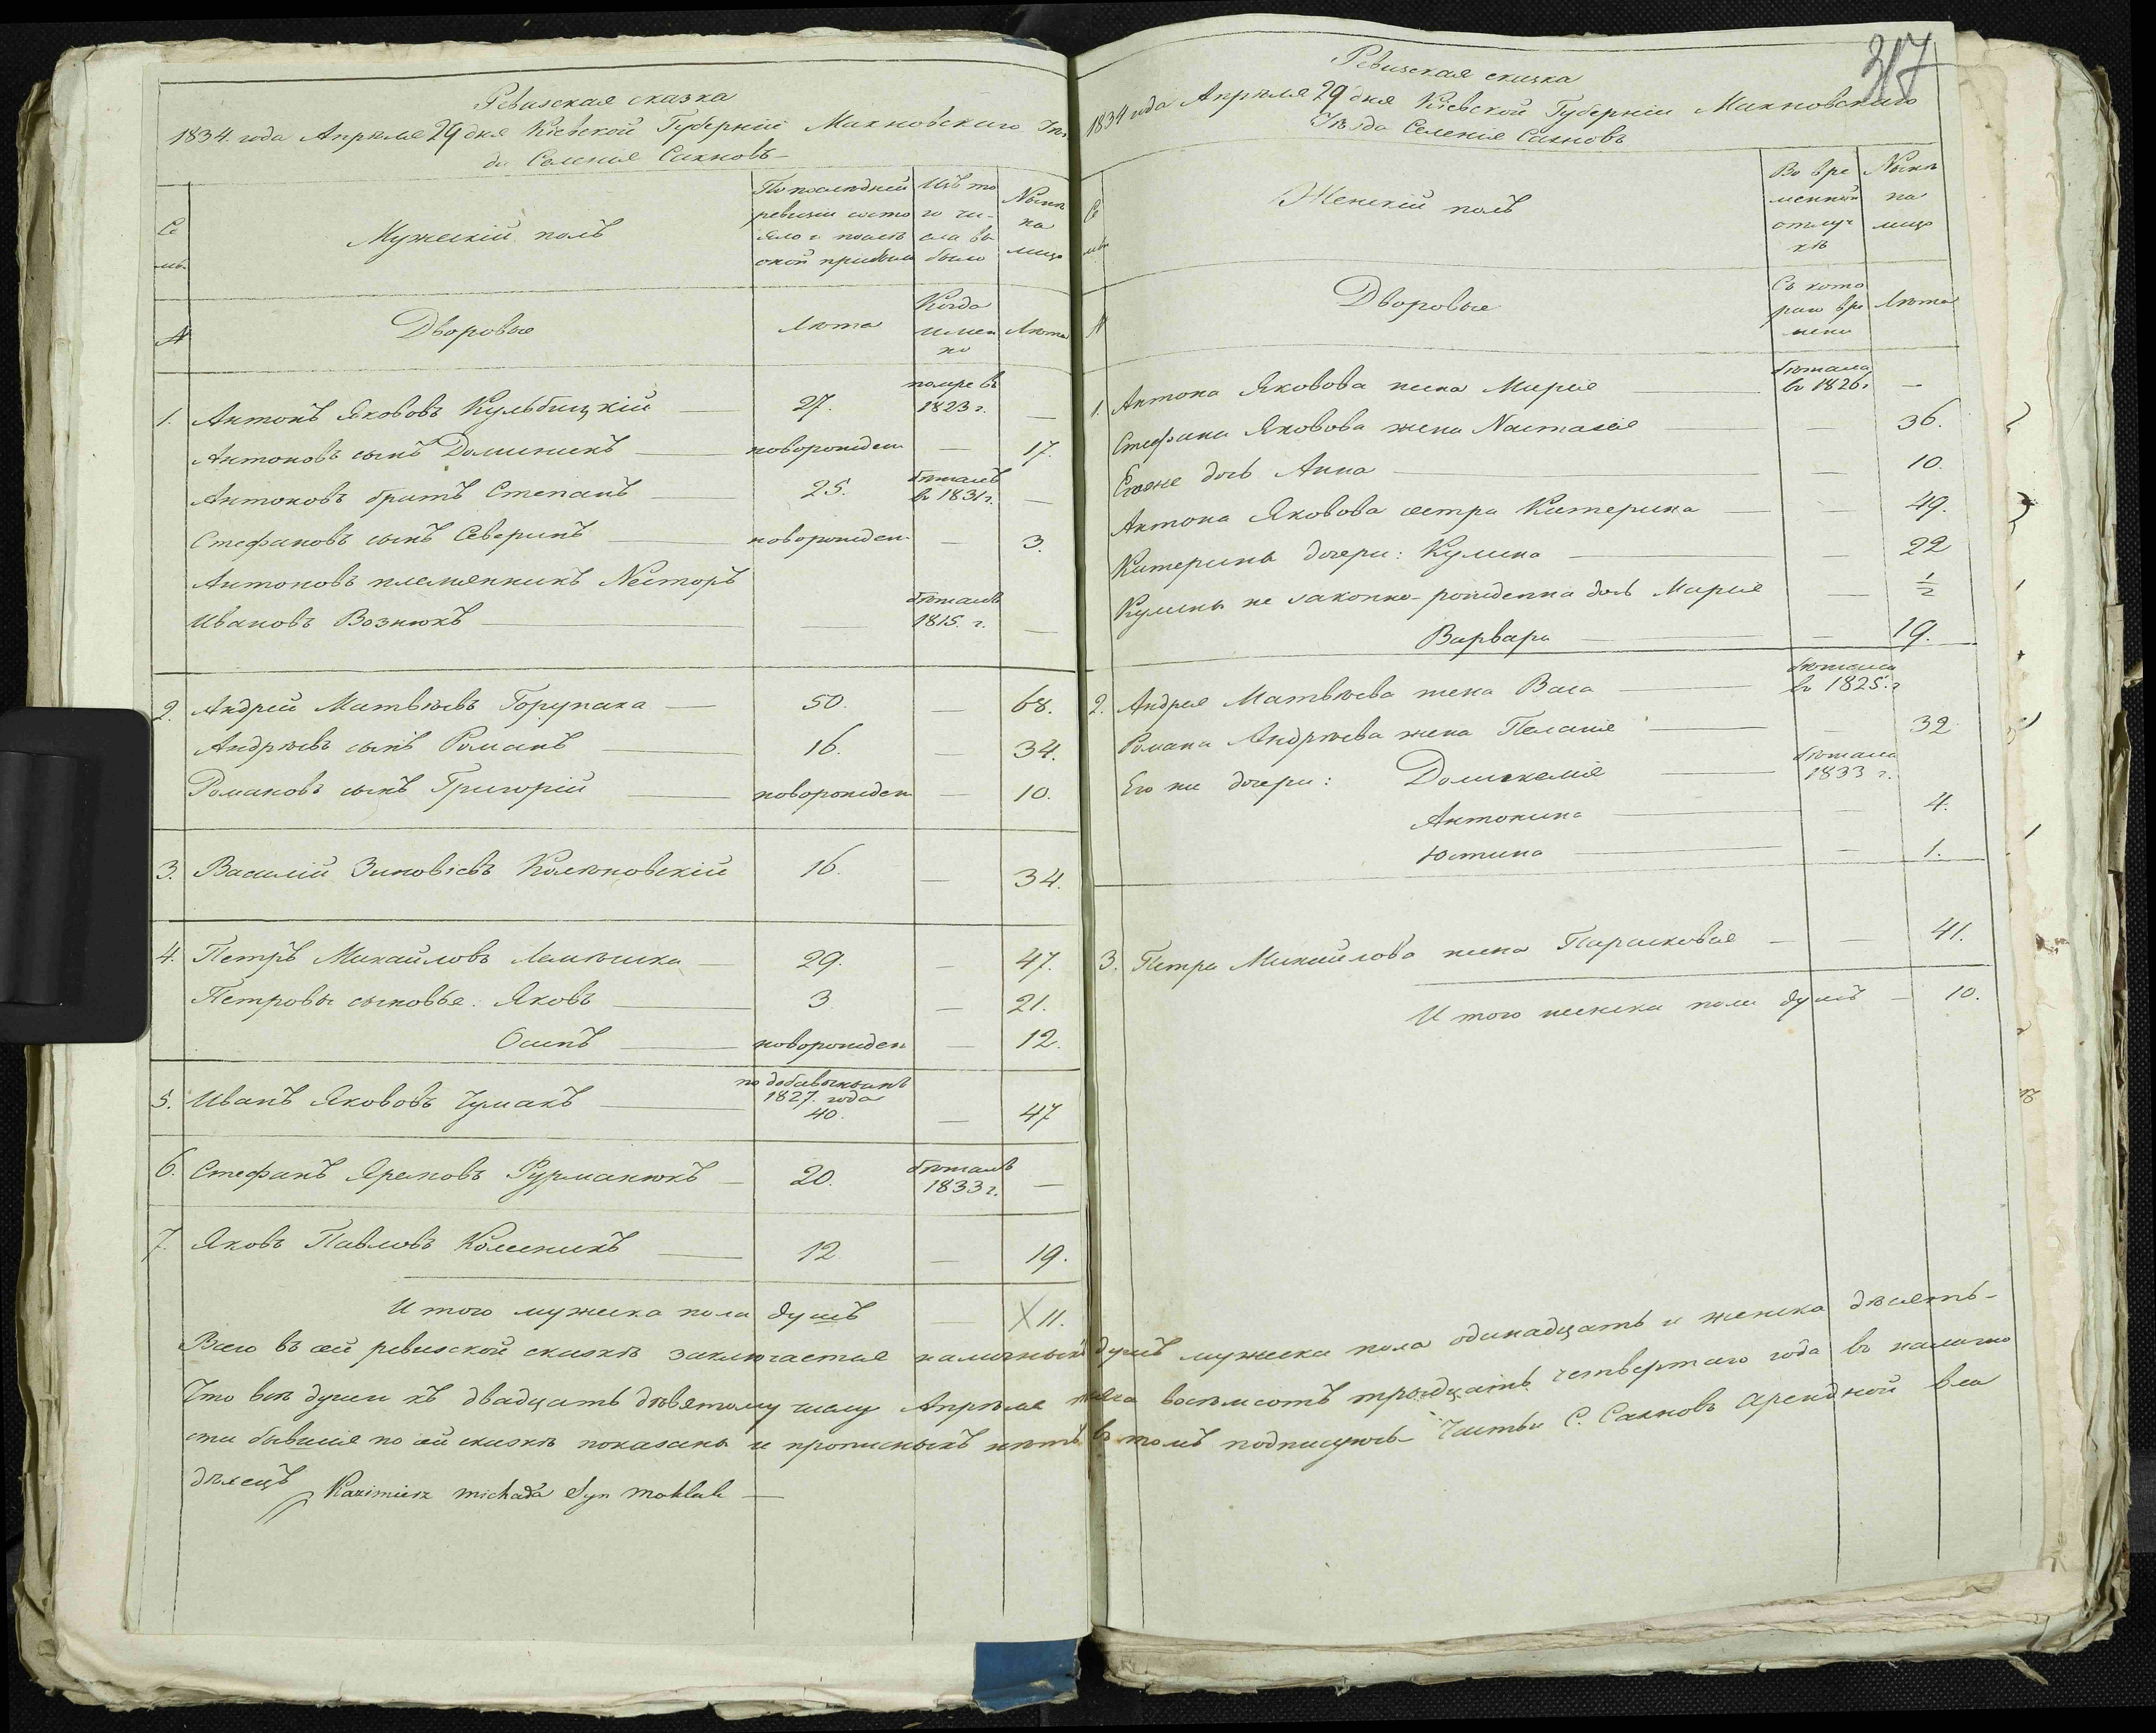 Ревизская сказка
1834. года Апрѣля 29 дня Кіевской Губерніи Махновскаго Уѣз
да Селенія Сахновъ
Се
мьи
Мужескій полъ
По послѣдней
ревизіи состо
яло и послѣ
оной прибыло
Изъ то
го чи-
сла вы
было
Нынѣ
на
лицо
№
Дворовые
Лѣта
Когда
имен
но
Лѣта
1. Антонъ Якововъ Кульбицкій — 27. помре въ 1823 г. —
Антоновъ сынъ Доминикъ — новорожден — 17.
Антоновъ братъ Степанъ — 25. бѣжалъ въ 1831 г. —
Стефановъ сынъ Северинъ — новорожден — 3.
Антоновъ племянникъ Несторъ
Ивановъ Вознюкъ — — бѣжалъ 1815. г. —
2. Андрей Матвѣевъ Горупаха — 50. — 68.
Андрѣевъ сынъ Романъ — 16. — 34.
Романовъ сынъ Григорій — новорожден — 10.
3. Василій Зиновіевъ 16. — 34.
4. Петръ Михайловъ — 29. — 47.
Петровы сыновья: Яковъ — 3 — 21.
Осипъ — новорожден — 12.
по добавочнымъ
1827. года
5. Иванъ Якововъ Чумакъ — 40. — 47
6. Стефанъ Фурманюкъ — 20. бѣжалъ 1833 г. —
7. Яковъ Павловъ Колесникъ — 12 — 19.
И того мужеска пола душъ — 11.
Ревизская сказка
317
1834 года Апрѣля 29 дня Кіевской Губерніи Махновскаго
Уѣзда Селенія Сахновъ
Се
мьи
Женскій полъ
Во вре
менной
отлуч
кѣ
Нынѣ
на
лицо
№
Дворовые
Съ кото
раго вре
мени
Лѣта
1. Антона Яковова жена Марія — бѣжала въ 1826 г —
Стефана Яковова жена Настасія — — 36.
Его же дочь Анна — — 10.
Антона Яковова сестра Катерина — — 49.
Катерины дочери: Кулина — — 22
Кулины не законно-рожденна дочь Марія — 1/2
Варвара — — 19.
2. Андрея Матвѣева жена Васа — бѣжала въ 1825. г
Романа Андрѣева жена Пелагія — — 32
Его же дочери: Домикелія — бѣжала 1833 г.
Антонина — — 4.
Юстина — — 1.
3. Петра Михайлова жена Парасковія — — 41.
И того женска пола душъ — 10.
Всего въ сей ревизской сказкѣ заключается наличныхъ душъ мужеска пола одинадцать и женска десять-
Что всѣ души къ двадцать девятому числу Апрѣля восѣмсотъ тридцать четвертаго года въ налично
сти бывшія по сей сказкѣ показаны и прописныхъ нѣтъ въ томъ подписуюсь- Части С. Сахновъ Арендной вла
дѣлецъ Kazimierz Michała Syn